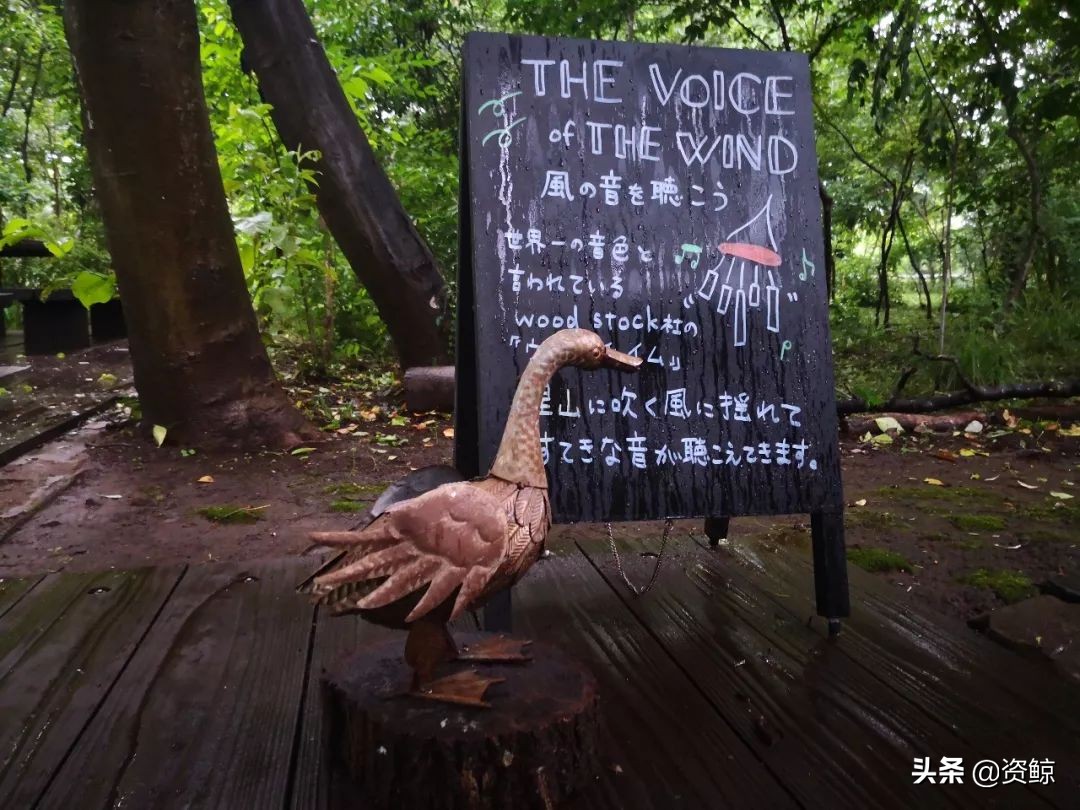 THE VOICE
of THE WIND
風の音を聴こう
世界一の音色と
言われている
wood stock社の
イム」
里山に吹く風に揺れて
すてきな音が聴こえてきます。
头条 @资鲸